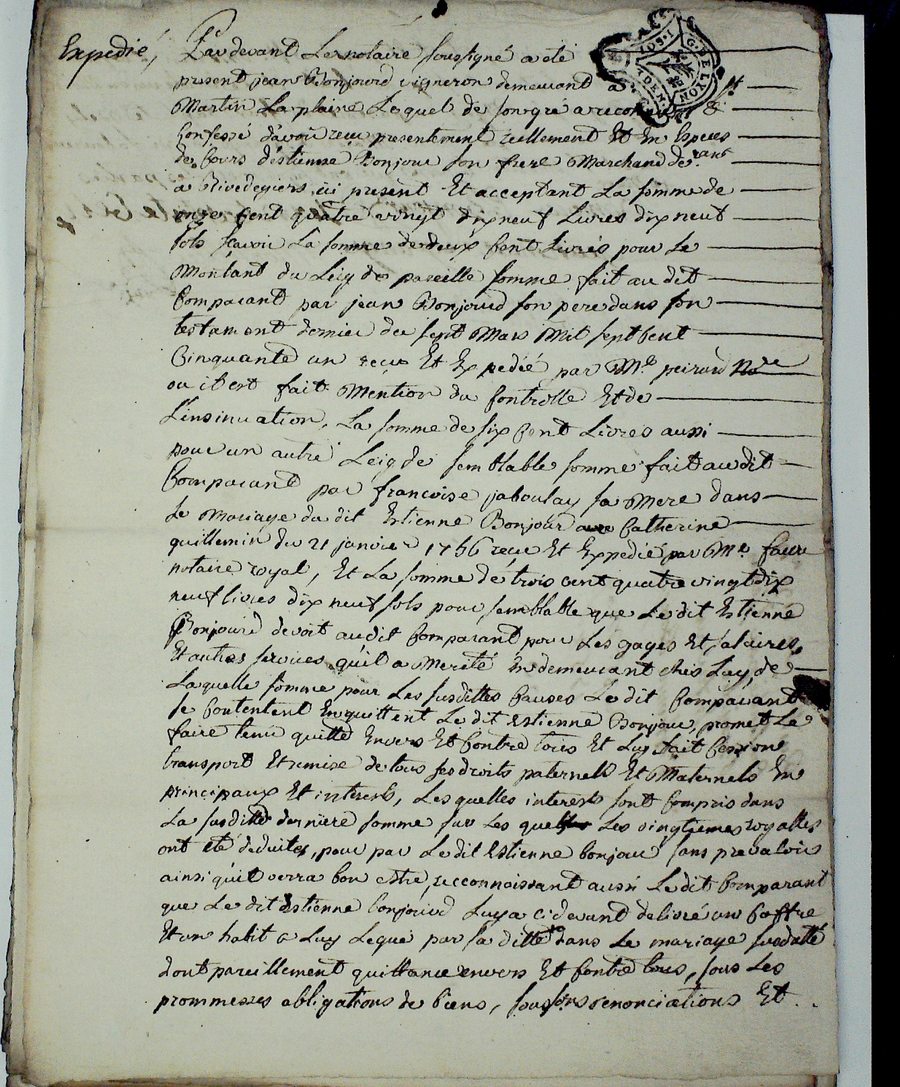 Expedié,
Pardevant Le notaire soussigné a été
present jean Bonjourd vigneron demeurant a St
Martin La plaine Lequel de son gré a reconnu &
Confessé d'avoir reçu presentement reellement Et En Especes
de Cours d'éstienne Bonjour son frere Marchand demeurant
a Rivedegiers ici présent Et acceptant La somme de
onze Cent quatre vingt dix neuf Livres dix neuf
sols sçavoir La somme de deux Cent Livres pour Le
Montant du Leig de pareille somme fait au dit
Comparant par jean Bonjourd son pere dans son
testament dernier du sept Mars Mil sept Cent
Cinquante un reçu Et Expedié par Me peirard Nre
ou il est fait Mention du Controlle Et de
L'insinuation, La somme de six Cent Livres aussi
pour un autre Leig de semblable somme fait au dit
Comparant par francoise jaboulay sa Mere dans
Le Mariage du dit Estienne Bonjour avec Catherine
guillemin du 21 janvier 1766 reçu Et Expedié par Me faure
notaire royal, Et La somme de trois cent quatre vingt dix
neuf livres dix neuf sols pour semblable que Le dit Estienne
Bonjourd devoit au dit Comparant pour Les gages Et salaires,
Et autres services qu'il a Merité En demeurant chés Luy, de
Laquelle somme pour Les susdittes Causes Le dit Comparant
se Contentent En quittent Le dit Estienne Bonjour, promet Le
faire tenir quitte Envers Et Contre tous Et Luy fait Cession
transport Et remise de tous ses droits paternels Et Maternels En
principaux Et interests, Lesquelles interests sont Compris dans
La susditte derniere somme sur Les quelles Les vingtiemes royalles
ont été déduites, pour par Le dit Estienne bonjour sans prevaloir
ainsi qu'il verra bon estre, recconnoissant aussi Le dit Comparant
que Le dit Estienne bonjourd Luy a cidevant delivré un Coffre
Et un habit a Luy Legué par sa ditte dans Le mariage susdatté
dont pareillement quittance envers Et Contre tous, sous Les
prommesses obligations de biens, sous renonciations Et